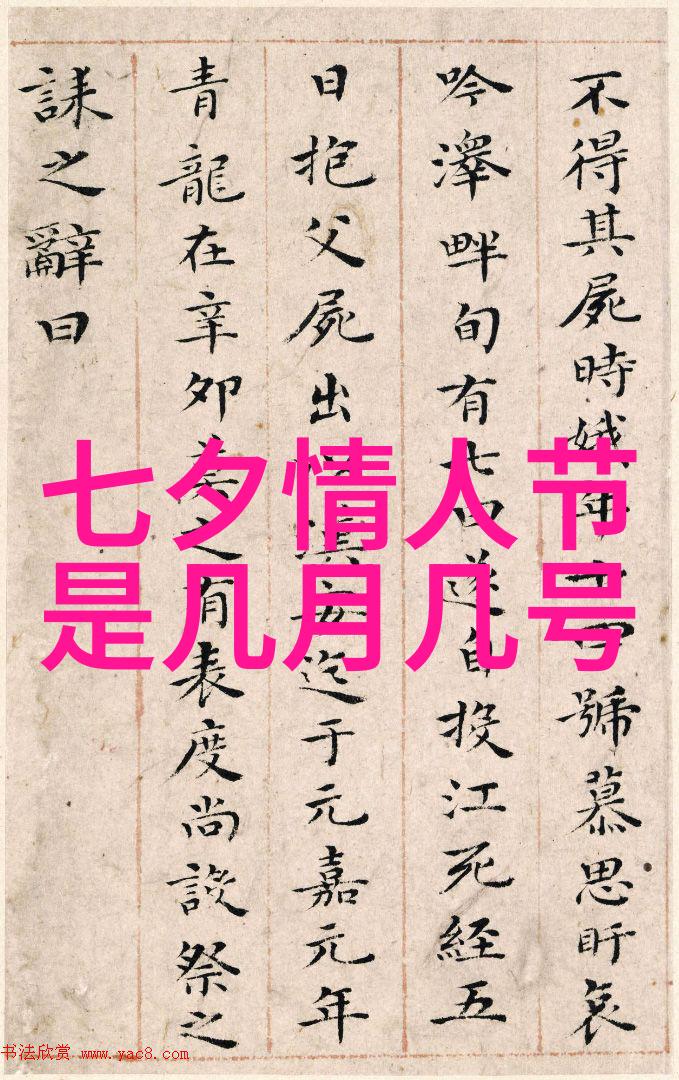 不得其屍時娥年十四號慕思盱哀
吟澤畔旬有七日遂自投江死經五
日抱父屍出漢安迄于元嘉元年
青龍在辛卯莫之有表度尚設祭之
誄之辭曰
七夕情人节
是几月几号
书法欣赏 www.yac8.com